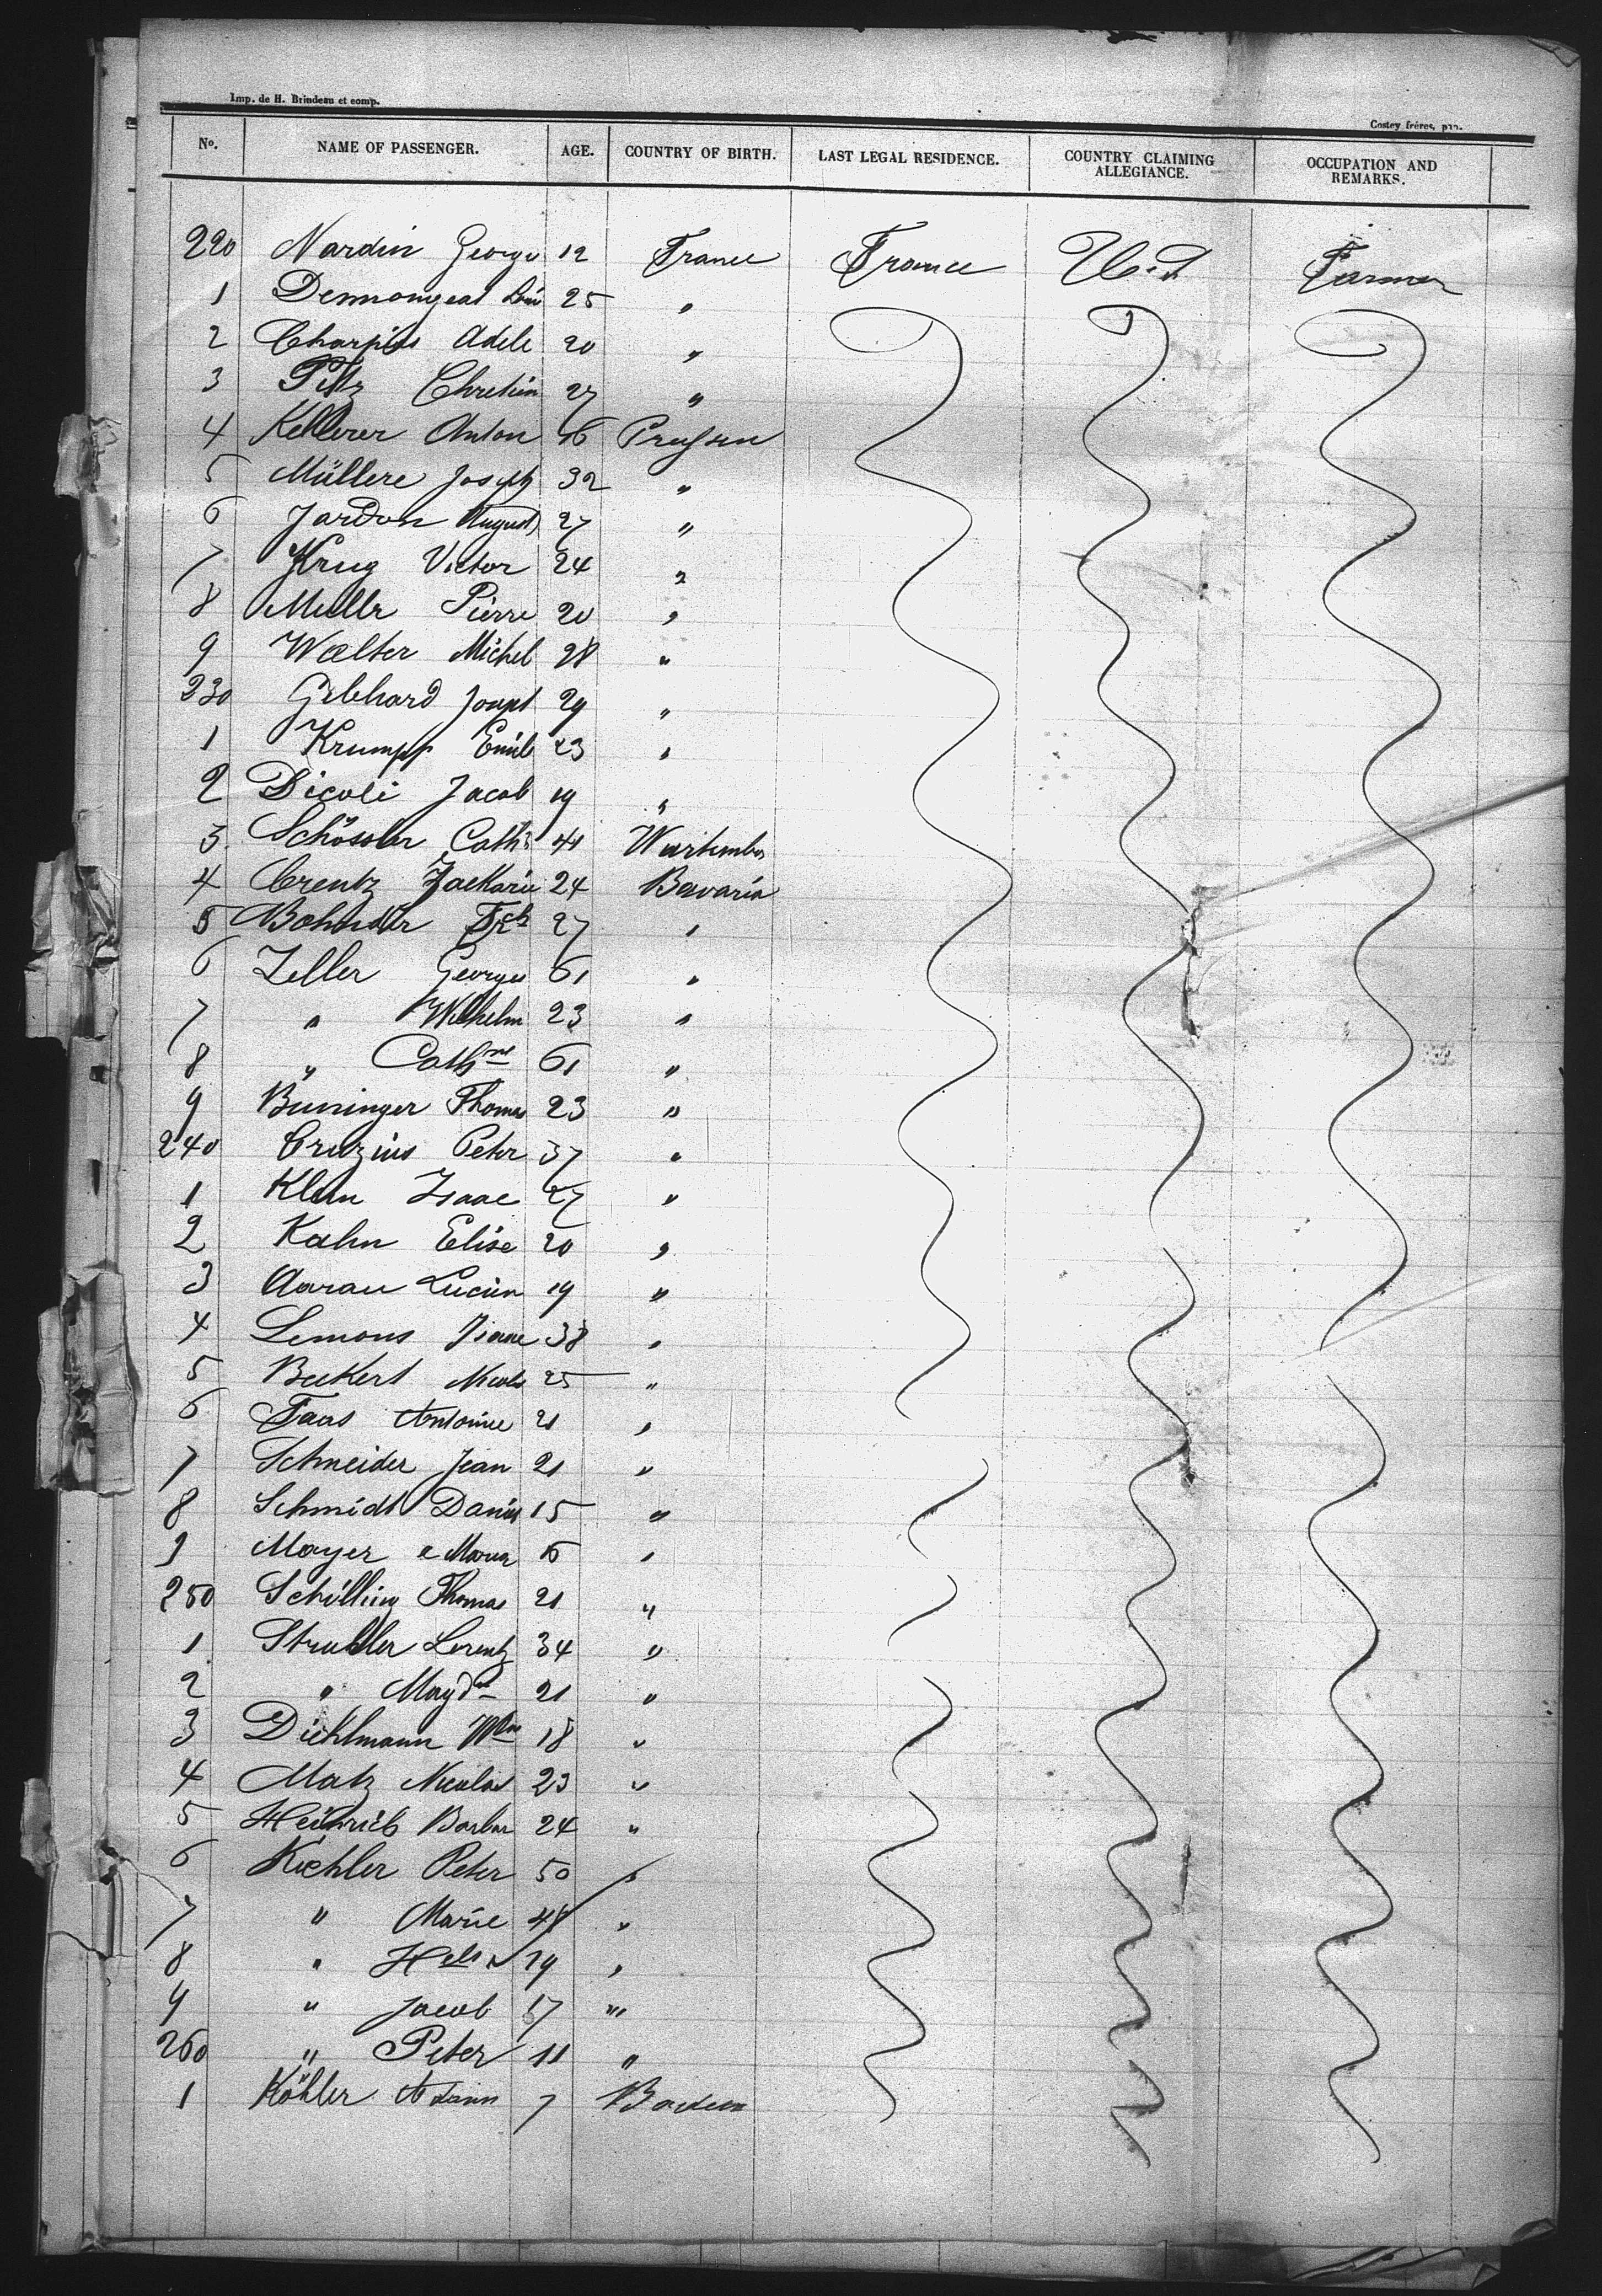 Imp. de H. Brindeau et comp.
Costey frères, pap.
No. NAME OF PASSENGER. AGE. COUNTRY OF BIRTH. LAST LEGAL RESIDENCE. COUNTRY CLAIMING ALLEGIANCE. OCCUPATION AND REMARKS.
220 Nardin George 12 France France U.S Farmer
1 Demongeat Louis 25 "
2 Adele 20 "
3 Pitz Chretien 27 "
4 Kellerer Anton 16 Preussen
5 Müllere Joseph 32 "
6 Jardon August 27 "
7 Krug Victor 24 "
8 Mullr Pierre 20 "
9 Walter Michel 28 "
230 Gebhard Josept 29 "
1 Krumpp Emile 23 "
2 Dicoli Jacob 19 "
3 Schössler Cath 41 Wurtemberg
4 Crentz Zackarie 24 Bavaria
5 27 "
6 Zeller Georges 61 "
7 " Wilhelm 23 "
8 " Cathne 61 "
9 Buninger Thomas 23 "
240 Cruzius Peter 37 "
1 Klein Isaac 27 "
2 Kahn Elise 20 "
3 Aarau Lucien 19 "
4 Lemons 38 "
5 Beckert Nicols 25 "
6 Faas Antoine 21 "
7 Schneider Jean 21 "
8 Schmidt Daniel 15 "
9 Mayer Maria 15 "
250 Schilling Thomas 21 "
1 Strubler Lorentz 34 "
2 " Magdne 21 "
3 Diehlmann Wm 18 "
4 Matz Nicolas 23 "
5 Heinrich Barbar 24 "
6 Kiehler Peter 50 "
7 " Marie 48 "
8 " 19 "
9 " Jacob 17 "
260 " Peter 11 "
1 Köhler Adam 7 Baden